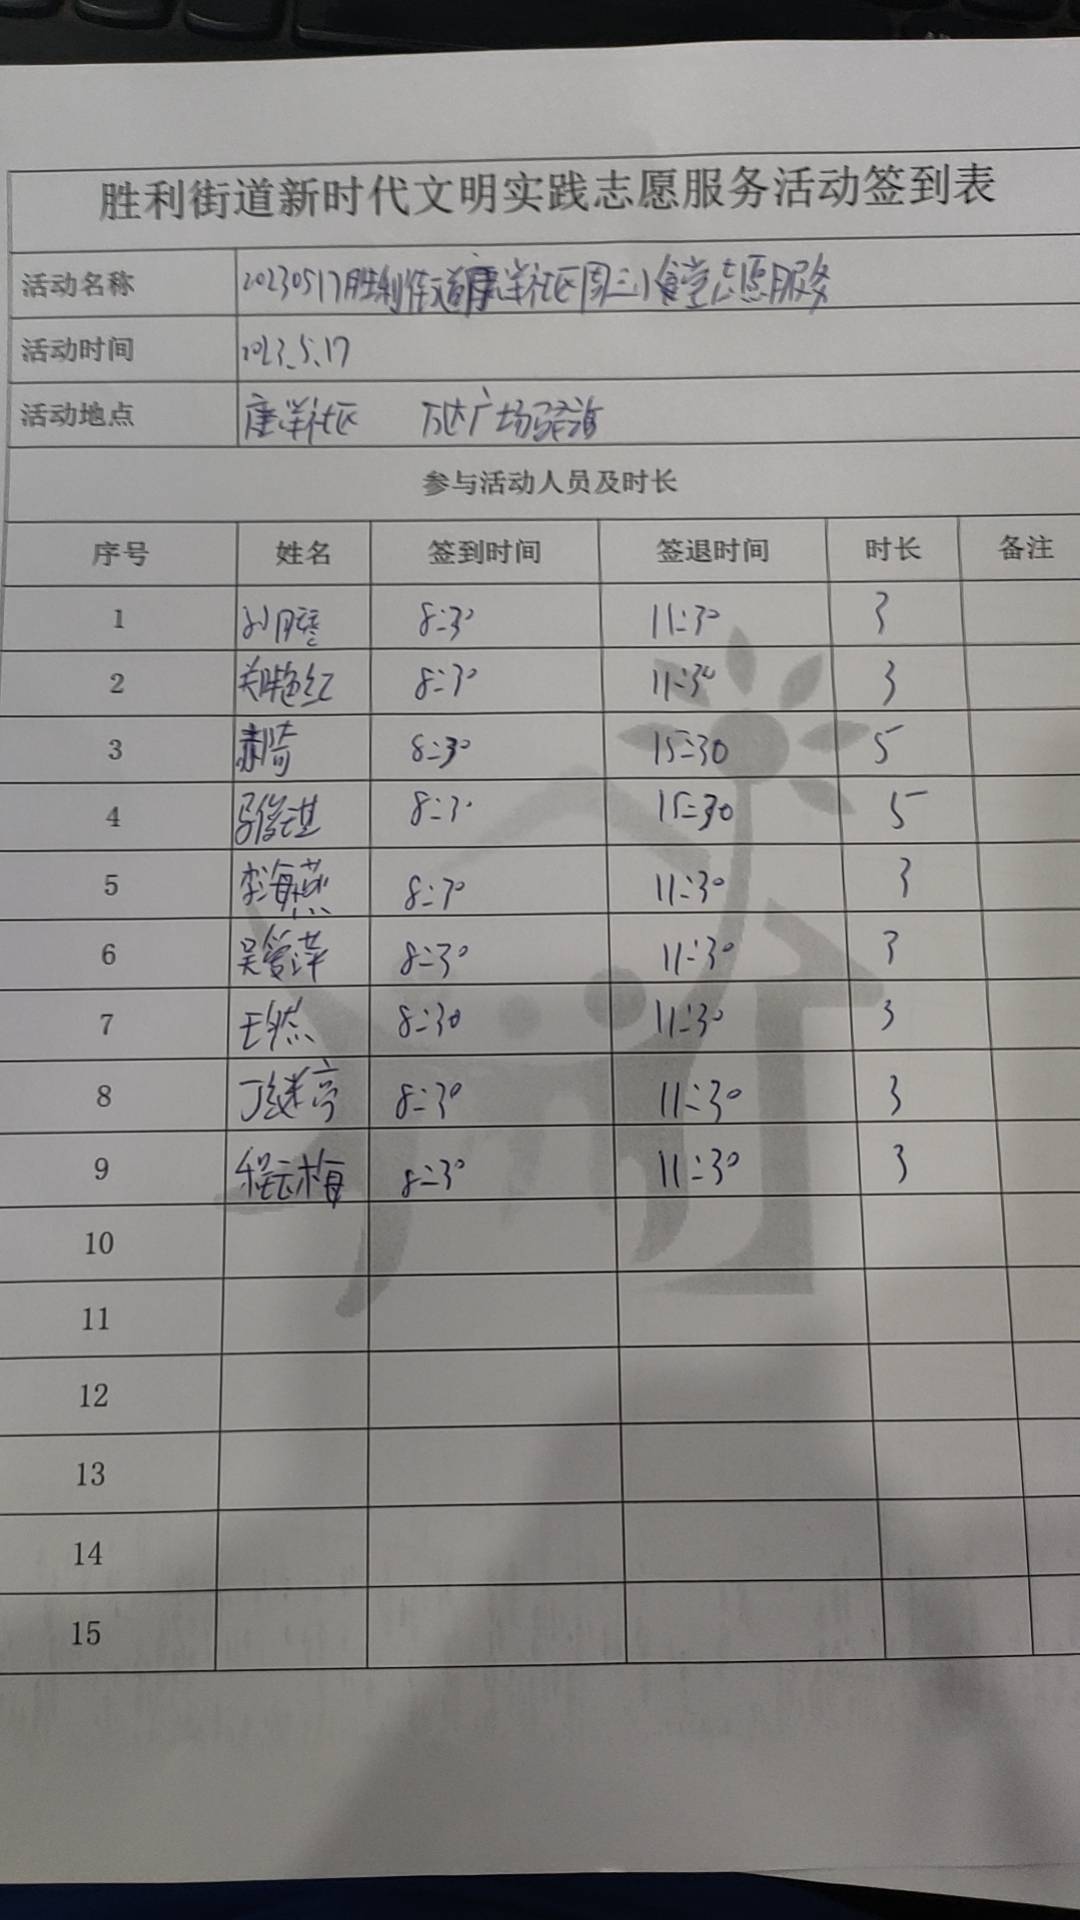 胜利街道新时代文明实践志愿服务活动签到表
活动名称 20230517胜利街道唐洋社区周三小食堂志愿服务
活动时间 2023.5.17
活动地点 唐洋社区 万达广场驿站
参与活动人员及时长
序号 姓名 签到时间 签退时间 时长 备注
1 8:30 11:30 3
2 关艳红 8:30 11:30 3
3 8:30 15:30 5
4 8:30 15:30 5
5 李海燕 8:30 11:30 3
6 吴爱萍 8:30 11:30 3
7 8:30 11:30 3
8 丁继亮 8:30 11:30 3
9 程云梅 8:30 11:30 3
10
11
12
13
14
15